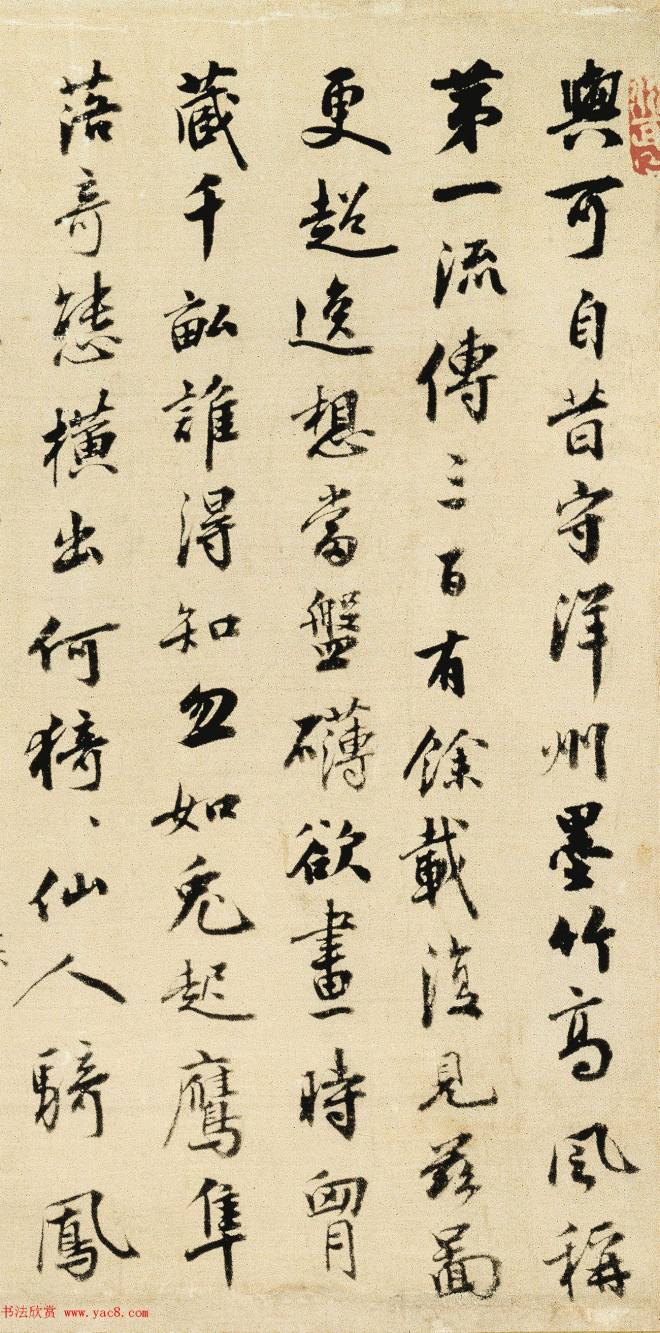 與可自昔守洋州墨竹高風稱
苐一流傳三百有餘載復見茲圖
更超逸想當盤礴欲畫時胷
藏千畝誰得知忽如兔起鷹隼
落奇態橫出何猗〻仙人騎鳳
书法欣赏 www.yac8.com